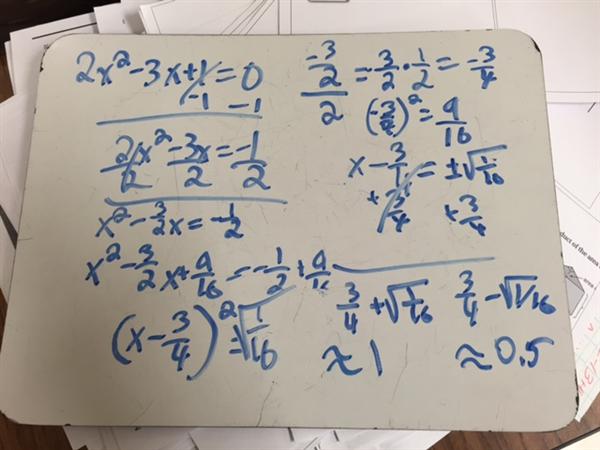 2x² - 3x + 1 = 0
-1 -1
2/2 x² - 3x/2 = -1/2
x² - 3/2 x = -1/2
x² - 3/2 x + 9/16 = -1/2 + 9/16
(x - 3/4)² = √1/16
-3/2 / 2 = -3/2 · 1/2 = -3/4
(-3/4)² = 9/16
x - 3/4 = ±√1/16
+ 3/4 + 3/4
3/4 + √1/16 3/4 - √1/16
≈ 1 ≈ 0.5
duct of the area